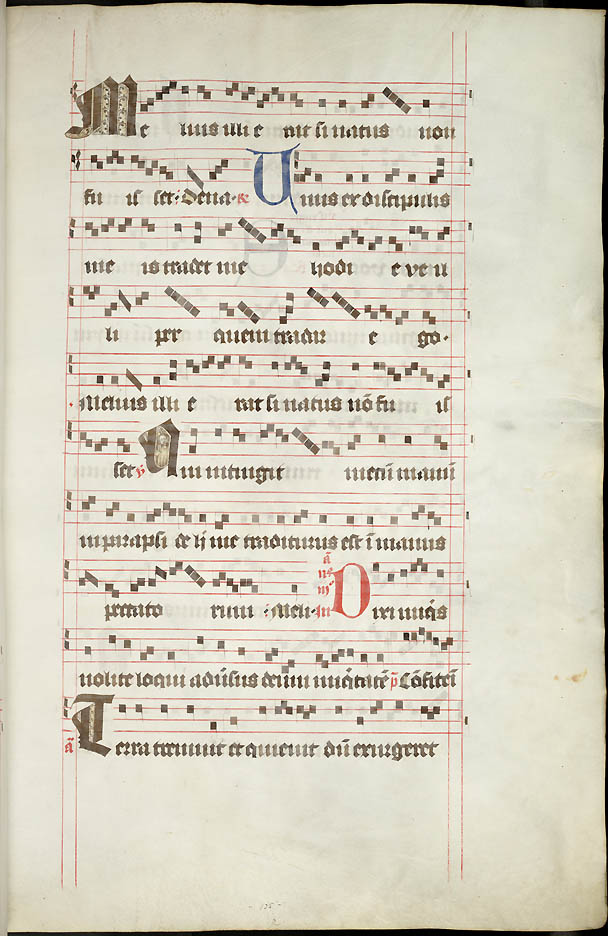 Me lius illi e rat si natus non
fu is set. Dena. R
Unus ex discipulis
me is tradet me hodi e ve u
li per quem tradar e go.
Melius illi e rat si natus nō fu is
set v̄ Qui intingit mecū manū
in parapsi de hᷣ me traditurus est ī manus
peccato rum Meli. In iij nᵒ añ Dixi iniqͥs
nolite loqui adūsus deum iniqͥtatē p̄ Cōfitem̄
añ Terra tremuit et quievit dum exurgeret
135